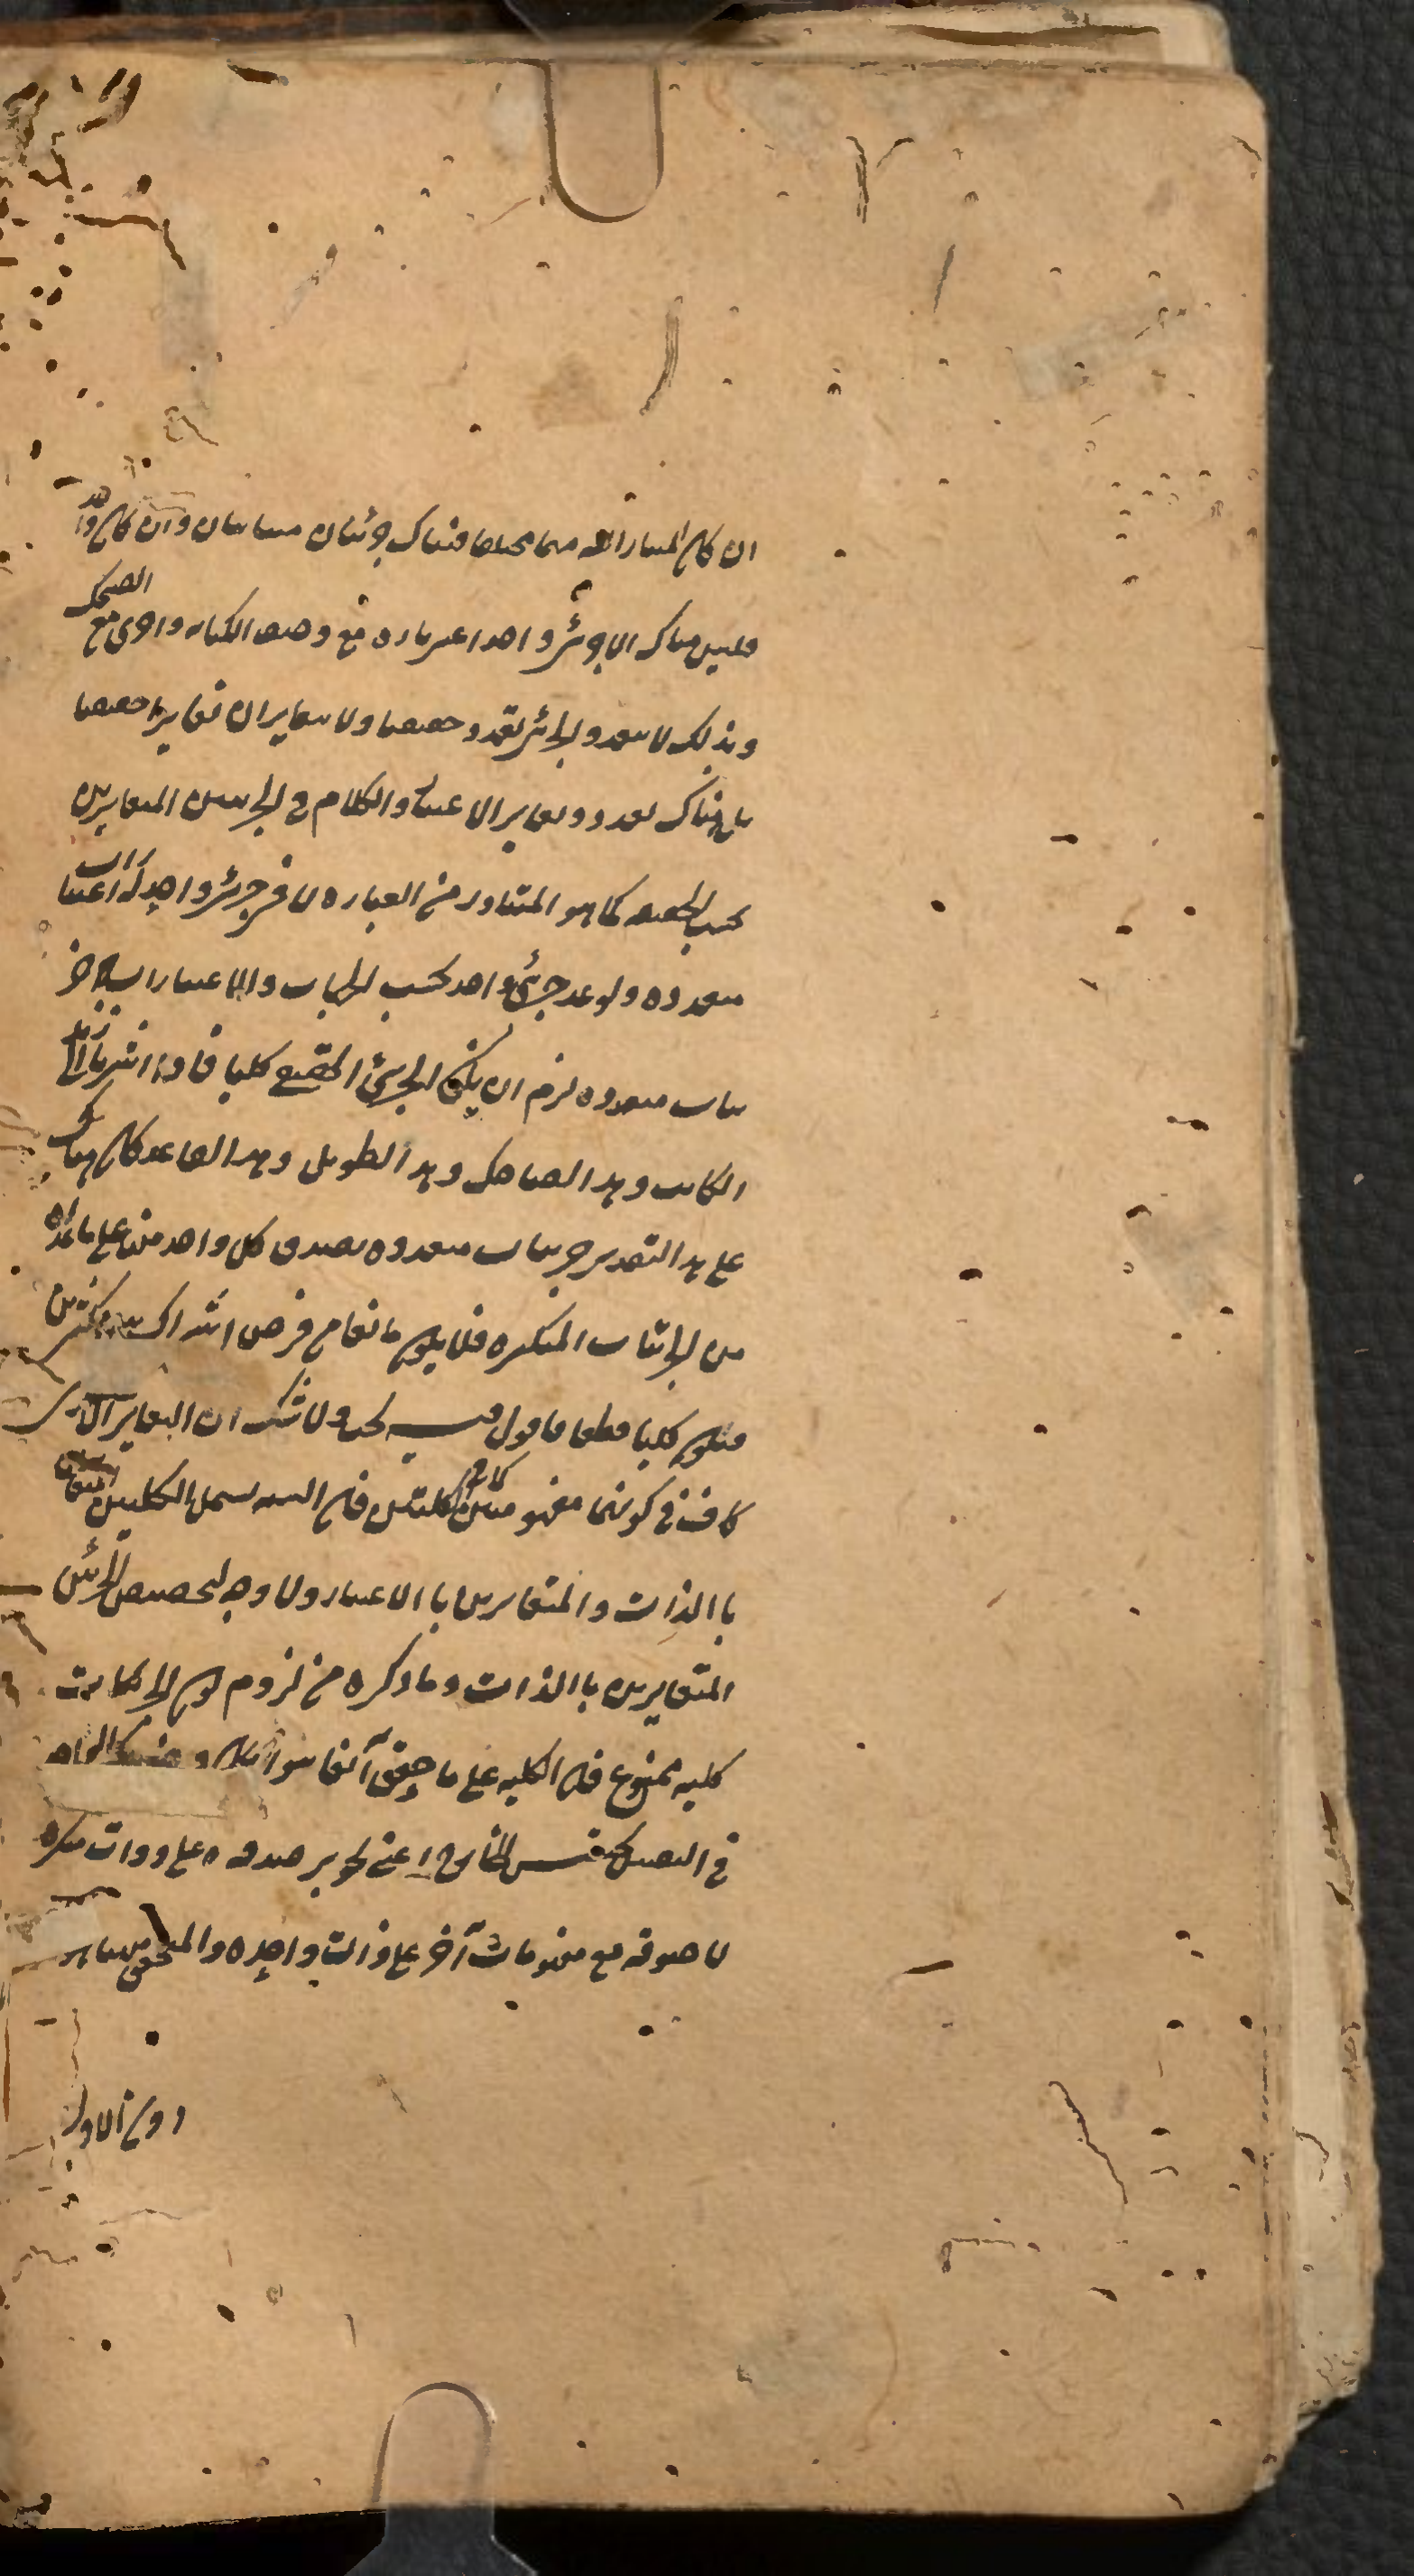 ان كان المشار اليه بهما مختلفا فهناك جزئيان متباينان وان كان واحدا
فليس هناك الا جزئي واحد اعتبر تارة مع وصف الكتابة واخرى مع الضحك
وبذلك لا يتعدد الجزئي تعددا حقيقيا ولا يتغايران تغايرا حقيقيا
بل هناك تعدد وتغاير بالاعتبار والكلام في الجزئيين المتغايرين
بحسب الحقيقة كما هو المتبادر من العبارة لا في جزئي واحد له اعتبارات
متعددة ولو عد جزئي واحد بحسب الجهات والاعتبارات جزئيات
متعددة لزم ان يكون الجزئي الحقيقي كليا فاذا اشير الى زيد بهذا
الكاتب وهذا الضاحك وهذا الطويل وهذا القاعد كان هناك
على هذا التقدير جزئيات متعددة يصدق كل واحد منها على ما عداه
من الجزئيات المتكثرة فلا يكون مانعا من فرض اشتراكه بين كثيرين
فيكون كليا قطعا فاقول فيه بحث ولا شك ان التغاير الاعتباري
كاف في كونهما مفهومين كالكليين فان النسبة يشمل الكليين المتغايرين
باالذات والمتغايرين باالاعتبار ولا وجه لتخصيص الجزئيين
المتغايرين باالذات وما ذكره من لزوم كون الجزئيات
كلية ممنوع فان الكلية على ما حقق آنفا هو امكان
في العقل بحسب الخارج اعني تجويز صدقه على ذوات متكثرة
لا صدقه مع مفهومات آخر على ذات واحدة والمتحقق
دون الاول